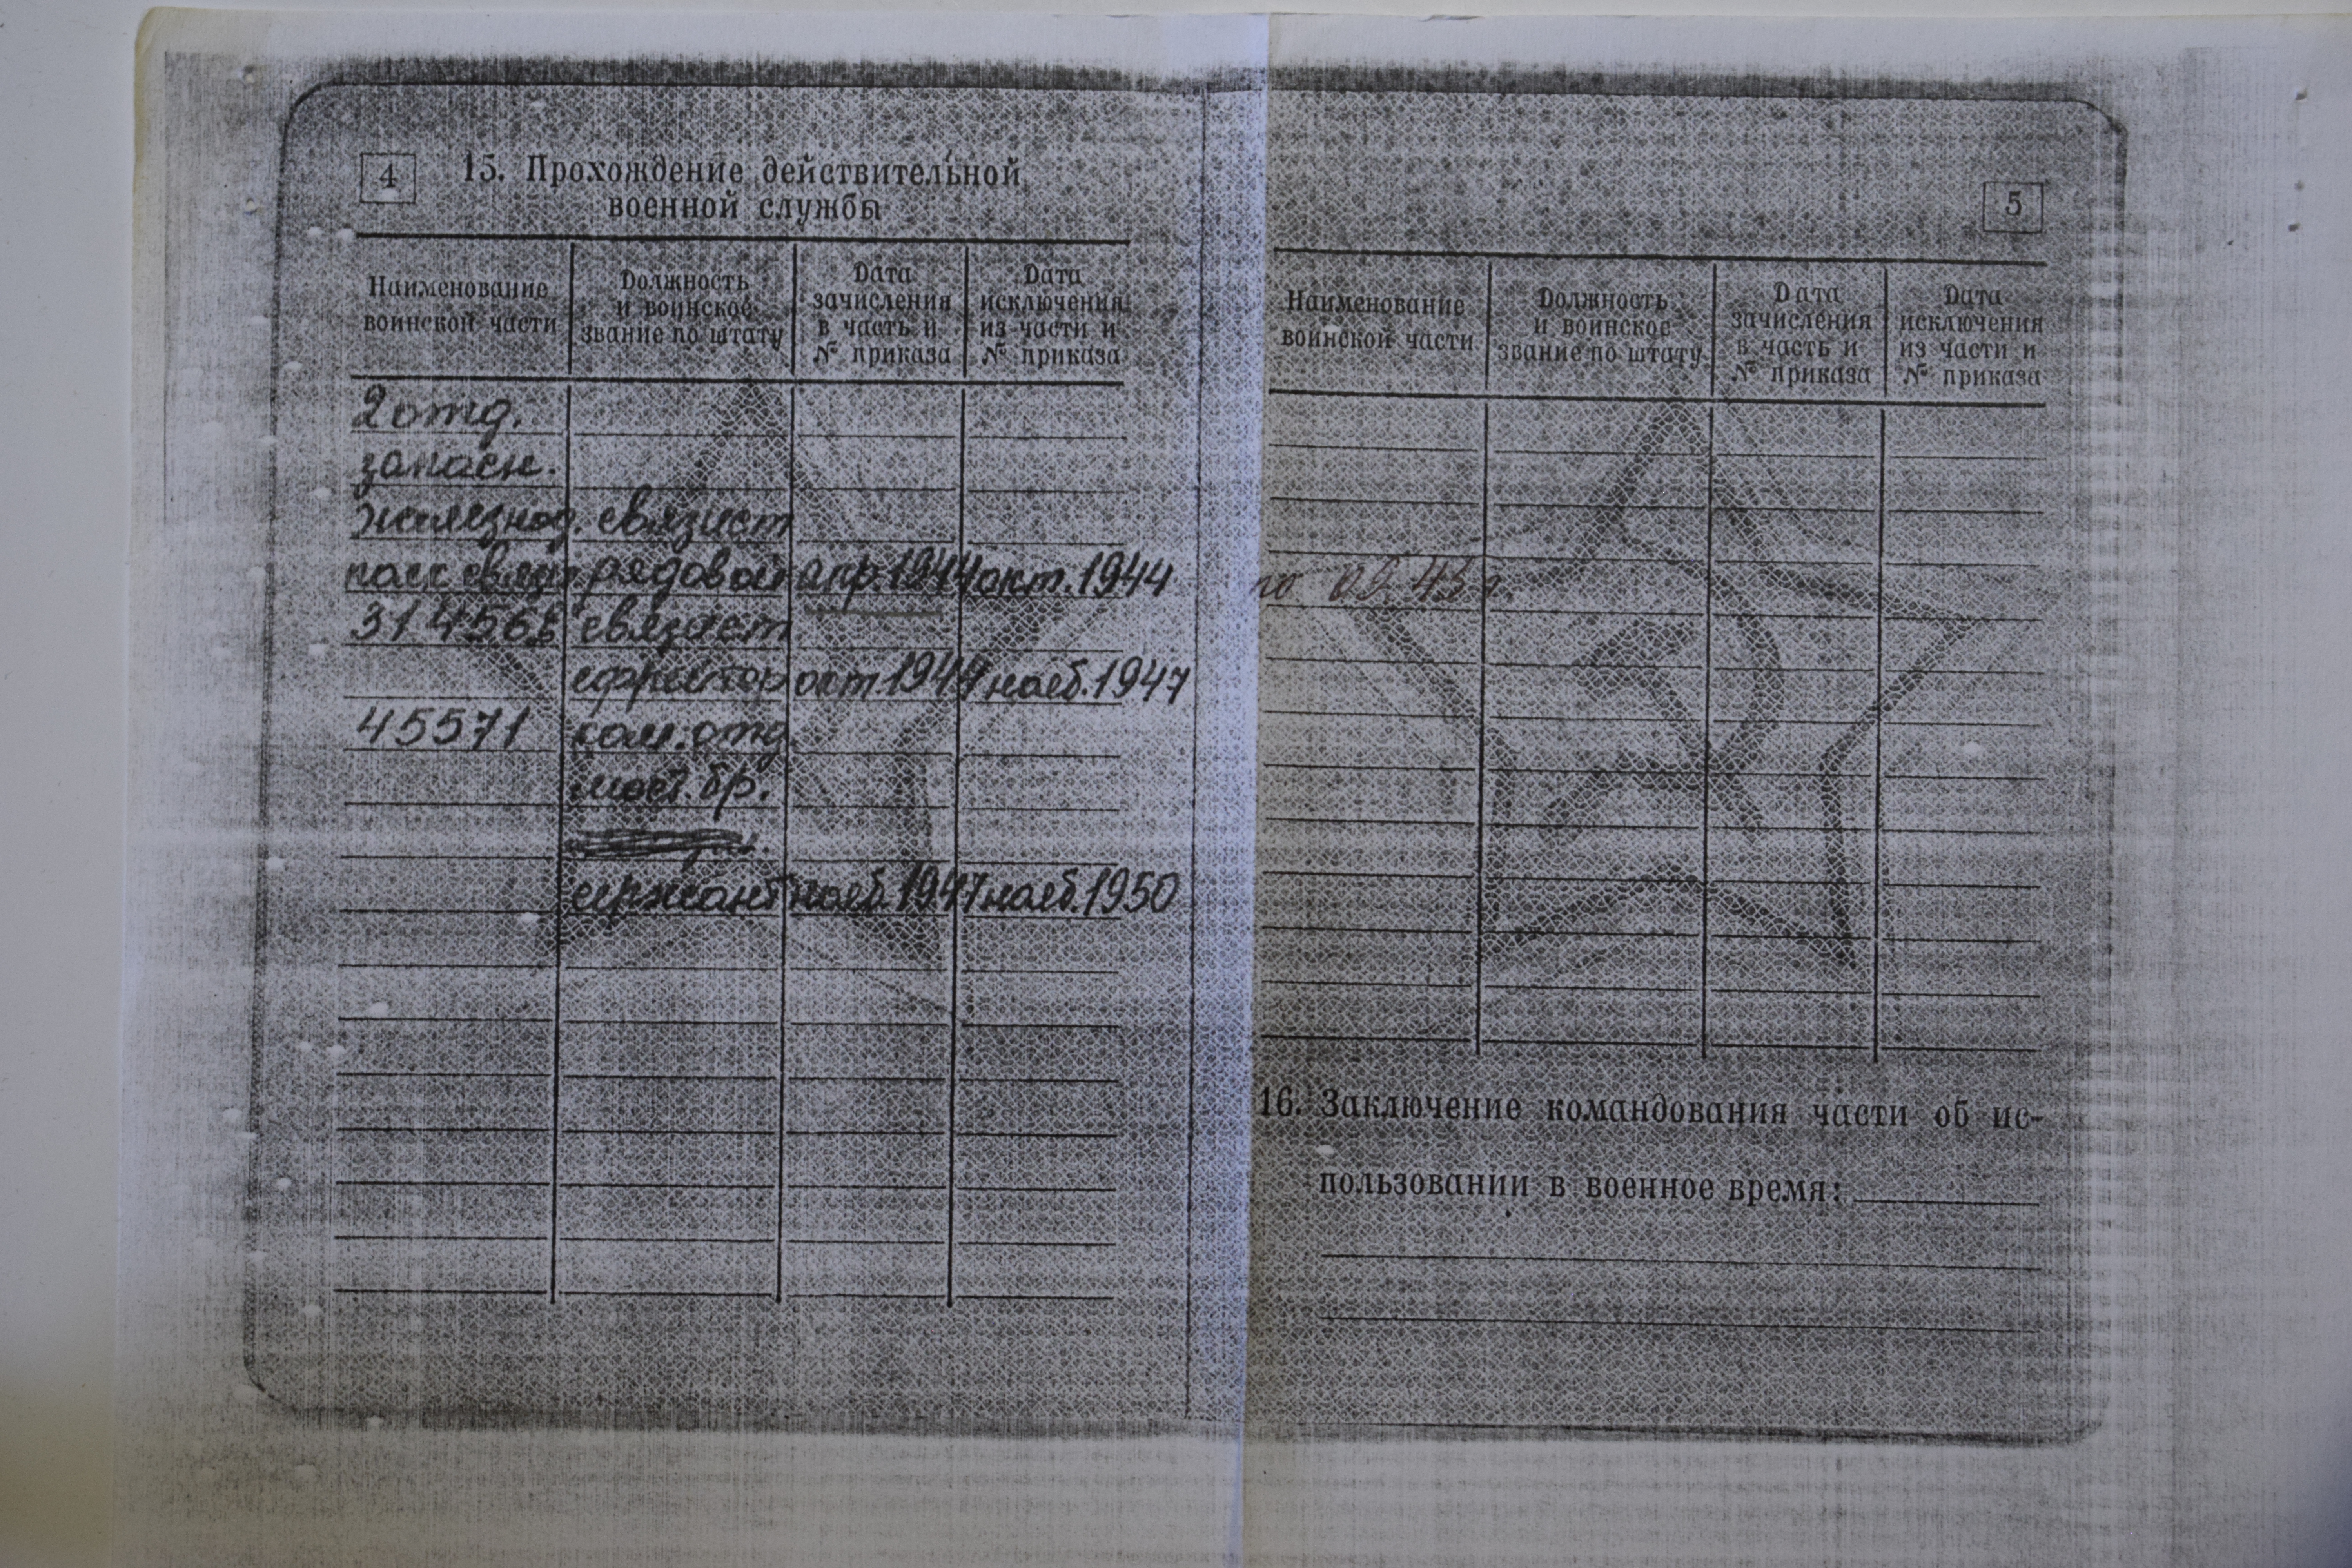 4
15. Прохождение действительной
военной службы
Наименование
воинской части
Должность
и воинское
звание по штату
Дата
зачисления
в часть и
№ приказа
Дата
исключения
из части и
№ приказа
2 отд.
запасн.
железнод. связист
полк связи рядовой апр. 1944 окт. 1944
связист
ефрейтор окт. 1944 нояб. 1947
45571 ком. отд.
мост. бр.
сержант нояб. 1947 нояб. 1950
5
Наименование
воинской части
Должность
и воинское
звание по штату
Дата
зачисления
в часть и
№ приказа
Дата
исключения
из части и
№ приказа
по 09.45 г.
16. Заключение командования части об ис-
пользовании в военное время: